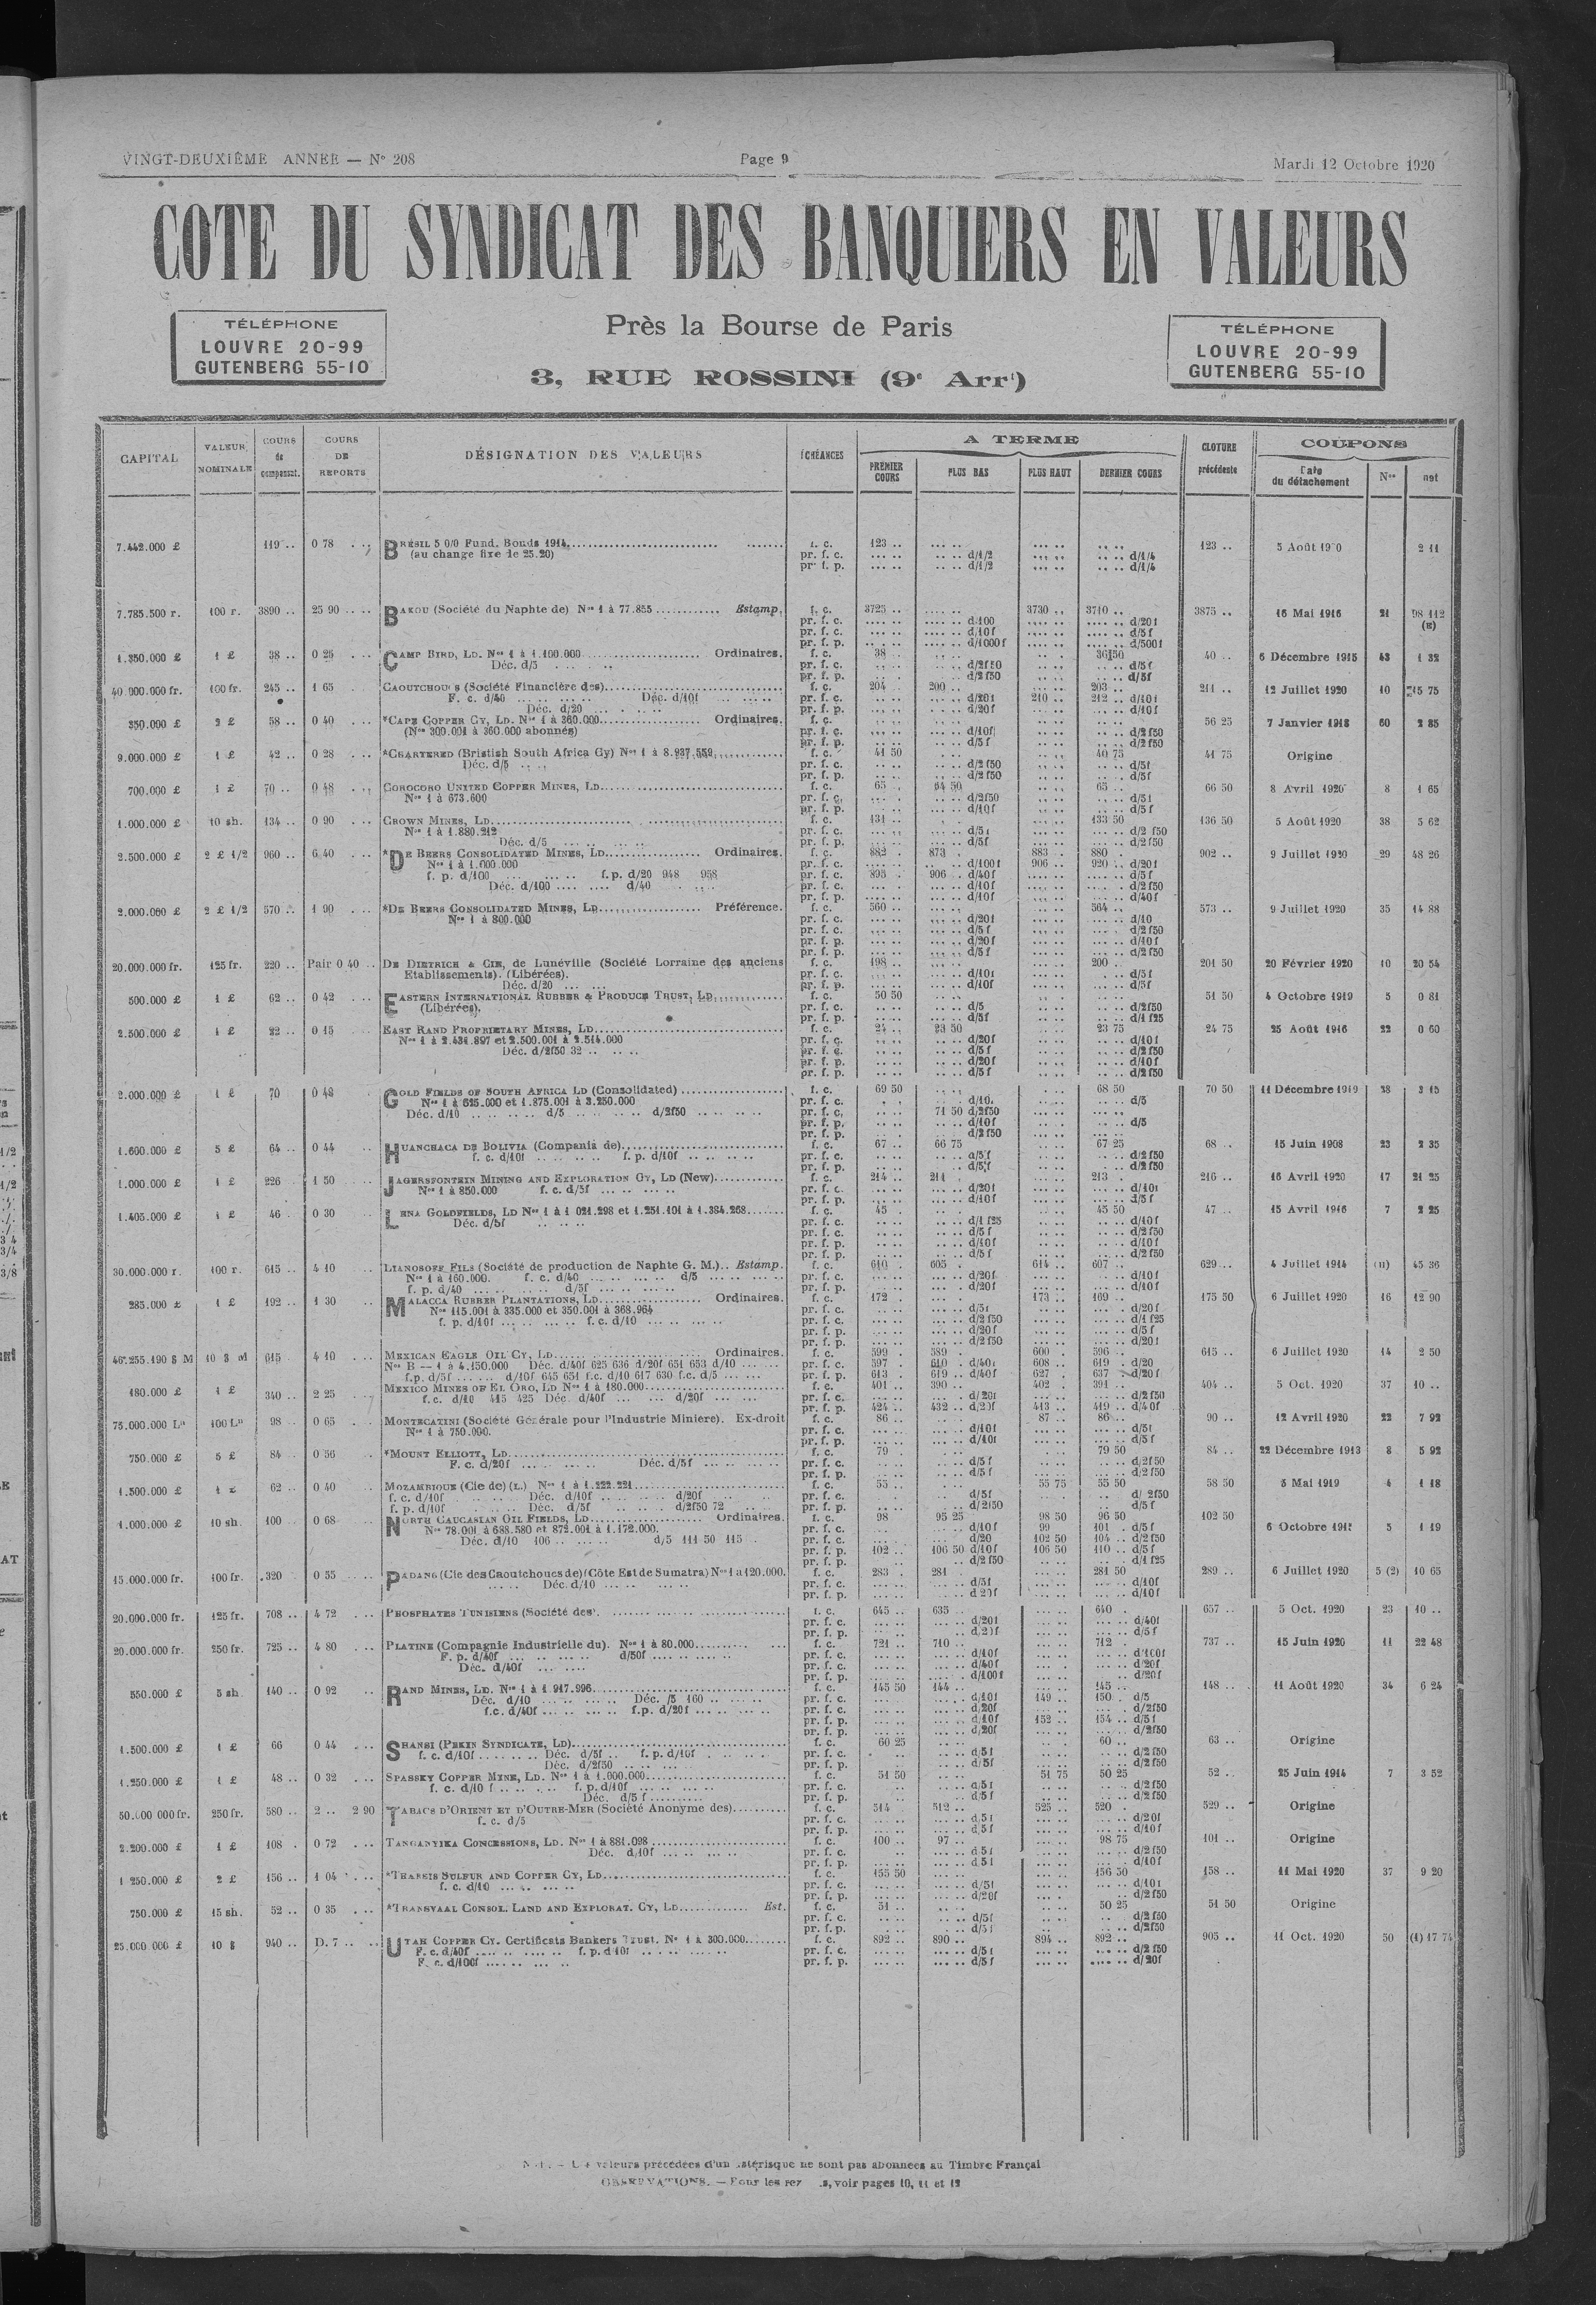 VINGT-DEUXIÈME ANNEE — N° 208
Page 9
Mardi 12 Octobre 1920
COTE DU SYNDICAT DES BANQUIERS EN VALEURS
TÉLÉPHONE
LOUVRE 20-99
GUTENBERG 55-10
Près la Bourse de Paris
3, RUE ROSSINI (9e Arrt)
TÉLÉPHONE
LOUVRE 20-99
GUTENBERG 55-10
CAPITAL VALEUR NOMINALE COURS de compensat. COURS DE REPORTS DÉSIGNATION DES VALEURS ÉCHÉANCES A TERME CLOTURE précédente COUPONS
PREMIER COURS PLUS BAS PLUS HAUT DERNIER COURS Date du détachement Nos net
7.442.000 £ 119 .. 0 78 BRÉSIL 5 0/0 Fund. Bonds 1914 f. c. 123 .. 123 .. 5 Août 2 11
(au change fixe de 25.20) pr. f. c. d/1/2 d/1/4
pr. f. p. d/1/2 d/1/4
7.785.500 r. 100 r. 3890 .. 25 90 BAKOU (Société du Naphte de) Nos 1 à 77.855 Estamp. f. c. 3725 .. 3730 .. 3710 .. 3875 .. 16 Mai 1916 21 98 112
pr. f. c. d/100 d/20f
pr. f. c. d/10f d/5f
pr. f. p. d/1000f d/500f
1.350.000 £ 1 £ 38 .. 0 25 CAMP BIRD, LD. Nos 1 à 1.100.000 Ordinaires. f. c. 38 40 .. 6 Décembre 1915 43 1 32
Déc. d/5 pr. f. c. d/2f50 d/5f
pr. f. p. d/2f50 d/5f
40.000.000 fr. 100 fr. 245 .. 1 65 CAOUTCHOUCS (Société Financière des) f. c. 204 200 .. 203 .. 211 .. 12 Juillet 1920 10 15 75
F. c. d/40 Déc. d/10f pr. f. c. d/20f 210 .. 212 .. d/10f
Déc. d/20 pr. f. p. d/20f d/10f
350.000 £ 2 £ 58 .. 0 40 *CAPE COPPER CY, LD. Nos 1 à 360.000 Ordinaires. f. c. 56 25 7 Janvier 1918 60 2 85
(Nos 300.001 à 360.000 abonnés) pr. f. c. d/10f d/2f50
pr. f. p. d/5f d/2f50
9.000.000 £ 1 £ 42 .. 0 28 *CHARTERED (Bristish South Africa Cy) Nos 1 à 8.937.559 f. c. 41 50 40 75 41 75 Origine
Déc. d/5 pr. f. c. d/2f50 d/5f
pr. f. p. d/2f50 d/5f
700.000 £ 1 £ 70 .. 0 48 COROCORO UNITED COPPER MINES, LD f. c. 65 64 50 65 .. 66 50 8 Avril 1920 8 1 65
Nos 1 à 673.600 pr. f. c. d/2f50 d/5f
pr. f. p. d/10f d/5f
1.000.000 £ 10 sh. 134 .. 0 90 CROWN MINES, LD f. c. 131 .. 133 50 136 50 5 Août 1920 38 5 62
Nos 1 à 1.880.212 pr. f. c. d/5f d/2f50
Déc. d/5 pr. f. p. d/5f d/2f50
2.500.000 £ 2 £ 1/2 960 .. 6 40 *DE BEERS CONSOLIDATED MINES, LD Ordinaires. f. c. 882 873 883 880 902 .. 9 Juillet 1920 29 48 26
Nos 1 à 1.000.000 pr. f. c. d/100f 906 920 d/20f
f. p. d/100 f.p. d/20 948 958 pr. f. c. 895 906 d/40f d/5f
Déc. d/100 d/40 pr. f. c. d/10f d/2f50
pr. f. p. d/10f d/40f
2.000.000 £ 2 £ 1/2 570 .. 1 90 *DE BEERS CONSOLIDATED MINES, LD Préférence. f. c. 560 .. 564 .. 573 .. 9 Juillet 1920 35 14 88
Nos 1 à 800.000 pr. f. c. d/20f d/10
pr. f. c. d/5f d/2f50
pr. f. p. d/20f d/10f
pr. f. p. d/5f d/2f50
20.000.000 fr. 125 fr. 220 .. Pair 0 40 DE DIETRICH & CIE, de Lunéville (Société Lorraine des anciens f. c. 198 .. 200 .. 201 50 20 Février 1920 10 20 54
Etablissements). (Libérées). pr. f. c. d/10f d/5f
Déc. d/20 pr. f. p. d/10f d/5f
500.000 £ 1 £ 62 .. 0 42 EASTERN INTERNATIONAL RUBBER & PRODUCE TRUST, LD f. c. 50 50 51 50 4 Octobre 1919 5 0 81
(Libérées). pr. f. c. d/5 d/2f50
pr. f. p. d/5f d/1 f25
2.500.000 £ 1 £ 22 .. 0 15 EAST RAND PROPRIETARY MINES, LD f. c. 24 .. 23 50 23 75 24 75 25 Août 1916 22 0 60
Nos 1 à 2.431.897 et 2.500.001 à 2.514.000 pr. f. c. d/20f d/10f
Déc. d/2f50 32 pr. f. c. d/5f d/2f50
pr. f. p. d/20f d/10f
pr. f. p. d/5f d/2f50
2.000.000 £ 1 £ 70 0 48 GOLD FIELDS OF SOUTH AFRICA LD (Consolidated) f. c. 69 50 68 50 70 50 11 Décembre 1919 28 3 15
Nos 1 à 625.000 et 1.875.001 à 3.250.000 pr. f. c. d/10. d/5
Déc. d/10 d/5 d/2f50 pr. f. c. 71 50 d/2f50
pr. f. p. d/10f d/5
pr. f. p. d/2f50
1.600.000 £ 5 £ 64 .. 0 44 HUANCHACA DE BOLIVIA (Compania de) f. c. 67 .. 66 75 67 25 68 .. 15 Juin 1908 23 2 35
f. c. d/10f f. p. d/10f pr. f. c. d/5f d/2f50
pr. f. p. d/5f d/2f50
1.000.000 £ 1 £ 226 1 50 JAGERSFONTEIN MINING AND EXPLORATION CY, LD (New) f. c. 214 .. 211 213 216 .. 16 Avril 1920 17 21 25
Nos 1 à 850.000 f. c. d/5f pr. f. c. d/20f d/10f
pr. f. p. d/10f d/5f
1.405.000 £ 1 £ 46 0 30 LENA GOLDFIELDS, LD Nos 1 à 1 021.298 et 1.251.101 à 1.384.268 f. c. 45 45 50 47 .. 15 Avril 1916 7 2 25
Déc. d/5f pr. f. c. d/1 f25 d/10f
pr. f. c. d/5f d/2f50
pr. f. p. d/10f d/10f
pr. f. p. d/5f d/2f50
30.000.000 r. 100 r. 615 .. 4 10 LIANOSOFF FILS (Société de production de Naphte G. M.) Estamp. f. c. 610 605 614 607 629 .. 4 Juillet 1914 (11) 45 36
Nos 1 à 160.000. f. c. d/40 d/5 pr. f. c. d/20f d/10f
f. p. d/40 d/5f pr. f. p. d/20f d/10f
285.000 £ 1 £ 192 .. 1 30 MALACCA RUBBER PLANTATIONS, LD Ordinaires. f. c. 172 173 169 175 50 6 Juillet 1920 16 12 90
Nos 115.001 à 335.000 et 350.001 à 368.964 pr. f. c. d/5f d/20f
f. p. d/10f f. c. d/10 pr. f. c. d/2f50 d/1 f25
pr. f. p. d/20f d/5f
pr. f. p. d/2f50 d/20f
46.255.190 $ M 10 $ M 615 4 10 MEXICAN EAGLE OIL CY, LD Ordinaires. f. c. 599 589 600 596 615 .. 6 Juillet 1920 14 2 50
Nos B — 1 à 4.150.000 Déc. d/40f 625 636 d/20f 651 653 d/10 pr. f. c. 597 610 d/40f 608 619 d/20
f.p. d/5f d/10f 645 651 f.c. d/10 617 630 f.c. d/5 pr. f. p. 613 619 d/40f 627 637 d/20f
180.000 £ 1 £ 340 .. 2 25 MEXICO MINES OF EL ORO, LD Nos 1 à 180.000 f. c. 401 390 402 391 404 .. 5 Oct. 1920 37 10 ..
f. c. d/10 415 425 Déc. d/40f d/20f pr. f. c. d/20f d/2f50
pr. f. p. 424 432 d/20f 413 419 d/40f
75.000.000 La 100 La 98 0 65 MONTECATINI (Société Générale pour l'Industrie Miniere). Ex-droit f. c. 86 87 86 90 .. 12 Avril 1920 22 7 92
Nos 1 à 750.000. pr. f. c. d/10f d/5f
pr. f. p. d/10f d/5f
750.000 £ 5 £ 84 0 56 *MOUNT ELLIOTT, LD f. c. 79 79 50 84 .. 22 Décembre 1913 8 5 92
F. c. d/20f Déc. d/5f pr. f. c. d/5f d/2f50
pr. f. p. d/5f d/2f50
1.500.000 £ 1 £ 62 .. 0 40 MOZAMBIQUE (Cie de) (L.) Nos 1 à 1.222.221 f. c. 55 .. 55 75 55 50 58 50 5 Mai 1919 4 1 18
f. c. d/10f Déc. d/10f d/20f pr. f. c. d/5f d/2f50
f. p. d/10f Déc. d/5f d/2f50 72 pr. f. p. d/2f50 d/5f
1.000.000 £ 10 sh. 100 0 68 NORTH CAUCASIAN OIL FIELDS, LD Ordinaires. f. c. 98 95 25 98 50 96 50 102 50
Nos 78.001 à 688.580 et 872.001 à 1.172.000. pr. f. c. d/10f 99 101 d/5f 6 Octobre 5 1 19
Déc. d/10 106 d/5 111 50 115 pr. f. c. d/20 102 50 104 d/2f50
pr. f. p. 102 .. 106 50 d/10f 106 50 110 d/5f
pr. f. p. d/2f50 d/1 f25
15.000.000 fr. 100 fr. 320 0 55 PADANG (Cie des Caoutchoucs de) (Côte Est de Sumatra) Nos 1 à 120.000. f. c. 283 281 281 50 289 .. 6 Juillet 1920 5 (2) 10 65
Déc. d/10 pr. f. c. d/5f d/10f
pr. f. p. d/20f d/10f
20.000.000 fr. 125 fr. 708 .. 4 72 PHOSPHATES TUNISIENS (Société des) f. c. 645 .. 635 .. 640 657 .. 5 Oct. 1920 23 10 ..
pr. f. c. d/20f d/40f
pr. f. p. d/20f d/5f
20.000.000 fr. 250 fr. 725 .. 4 80 PLATINE (Compagnie Industrielle du). Nos 1 à 80.000 f. c. 721 .. 710 .. 712 737 .. 15 Juin 1920 11 22 48
F. p. d/40f d/50f pr. f. c. d/10f d/100f
Déc. d/40f pr. f. c. d/40f d/20f
pr. f. p. d/100f d/20f
550.000 £ 5 sh 140 .. 0 92 RAND MINES, LD. Nos 1 à 1.917.996 f. c. 145 50 144 .. 145 .. 148 .. 11 Août 1920 34 6 24
Déc. d/10 Déc. /5 160 pr. f. c. d/10f 149 .. 150 d/5
f.c. d/40f f.p. d/20f pr. f. c. d/20f d/2f50
pr. f. p. d/10f 152 .. 154 .. d/5f
pr. f. p. d/20f d/2f50
1.500.000 £ 1 £ 66 0 44 SHANSI (PEKIN SYNDICATE, LD) f. c. 60 25 60 .. 63 .. Origine
f. c. d/10f Déc. d/5f f. p. d/10f pr. f. c. d/5f d/2f50
Déc. d/2f50 pr. f. p. d/5f d/2f50
1.250.000 £ 1 £ 48 .. 0 32 SPASSKY COPPER MINE, LD. Nos 1 à 1.000.000 f. c. 51 50 51 75 50 25 52 .. 25 Juin 1914 7 3 52
f. c. d/10 f f. p. d/10f pr. f. c. d/5f d/2f50
Déc. d/5 f pr. f. p. d/5f d/2f50
50.000 000 fr. 250 fr. 580 .. 2 .. 2 90 TABACS D'ORIENT ET D'OUTRE-MER (Société Anonyme des) f. c. 514 512 .. 525 .. 520 529 .. Origine
f. c. d/5 pr. f. c. d/5f d/20f
pr. f. p. d/5f d/10f
2.200.000 £ 1 £ 108 0 72 TANGANYIKA CONCESSIONS, LD. Nos 1 à 881.098 f. c. 100 .. 97 .. 98 75 101 .. Origine
Déc. d/10f pr. f. c. d/5f d/2f50
pr. f. p. d/5f d/10f
1 250.000 £ 2 £ 156 .. 1 04 *THARSIS SULFUR AND COPPER CY, LD f. c. 155 50 156 50 158 .. 11 Mai 1920 37 9 20
f. c. d/10 pr. f. c. d/5f d/10f
pr. f. p. d/20f d/2f50
750.000 £ 15 sh. 52 .. 0 35 *TRANSVAAL CONSOL. LAND AND EXPLORAT. CY, LD Est. f. c. 51 .. 50 25 51 50 Origine
pr. f. c. d/5f d/2f50
pr. f. p. d/5f d/2f50
25.000 000 £ 10 $ 940 .. D. 7 .. UTAH COPPER CY. Certificats Bankers Trust. Nos 1 à 300.000 f. c. 892 .. 890 .. 894 .. 892 .. 905 .. 11 Oct. 1920 50 (4) 17 74
F. c. d/40f f. p. d/10f pr. f. c. d/5f d/2f50
F. c. d/100f pr. f. p. d/5f d/20f
valeurs précédées d'un astérisque ne sont pas abonnées au Timbre Françai
OBSERVATIONS. — Pour les voir pages 10, 11 et 12